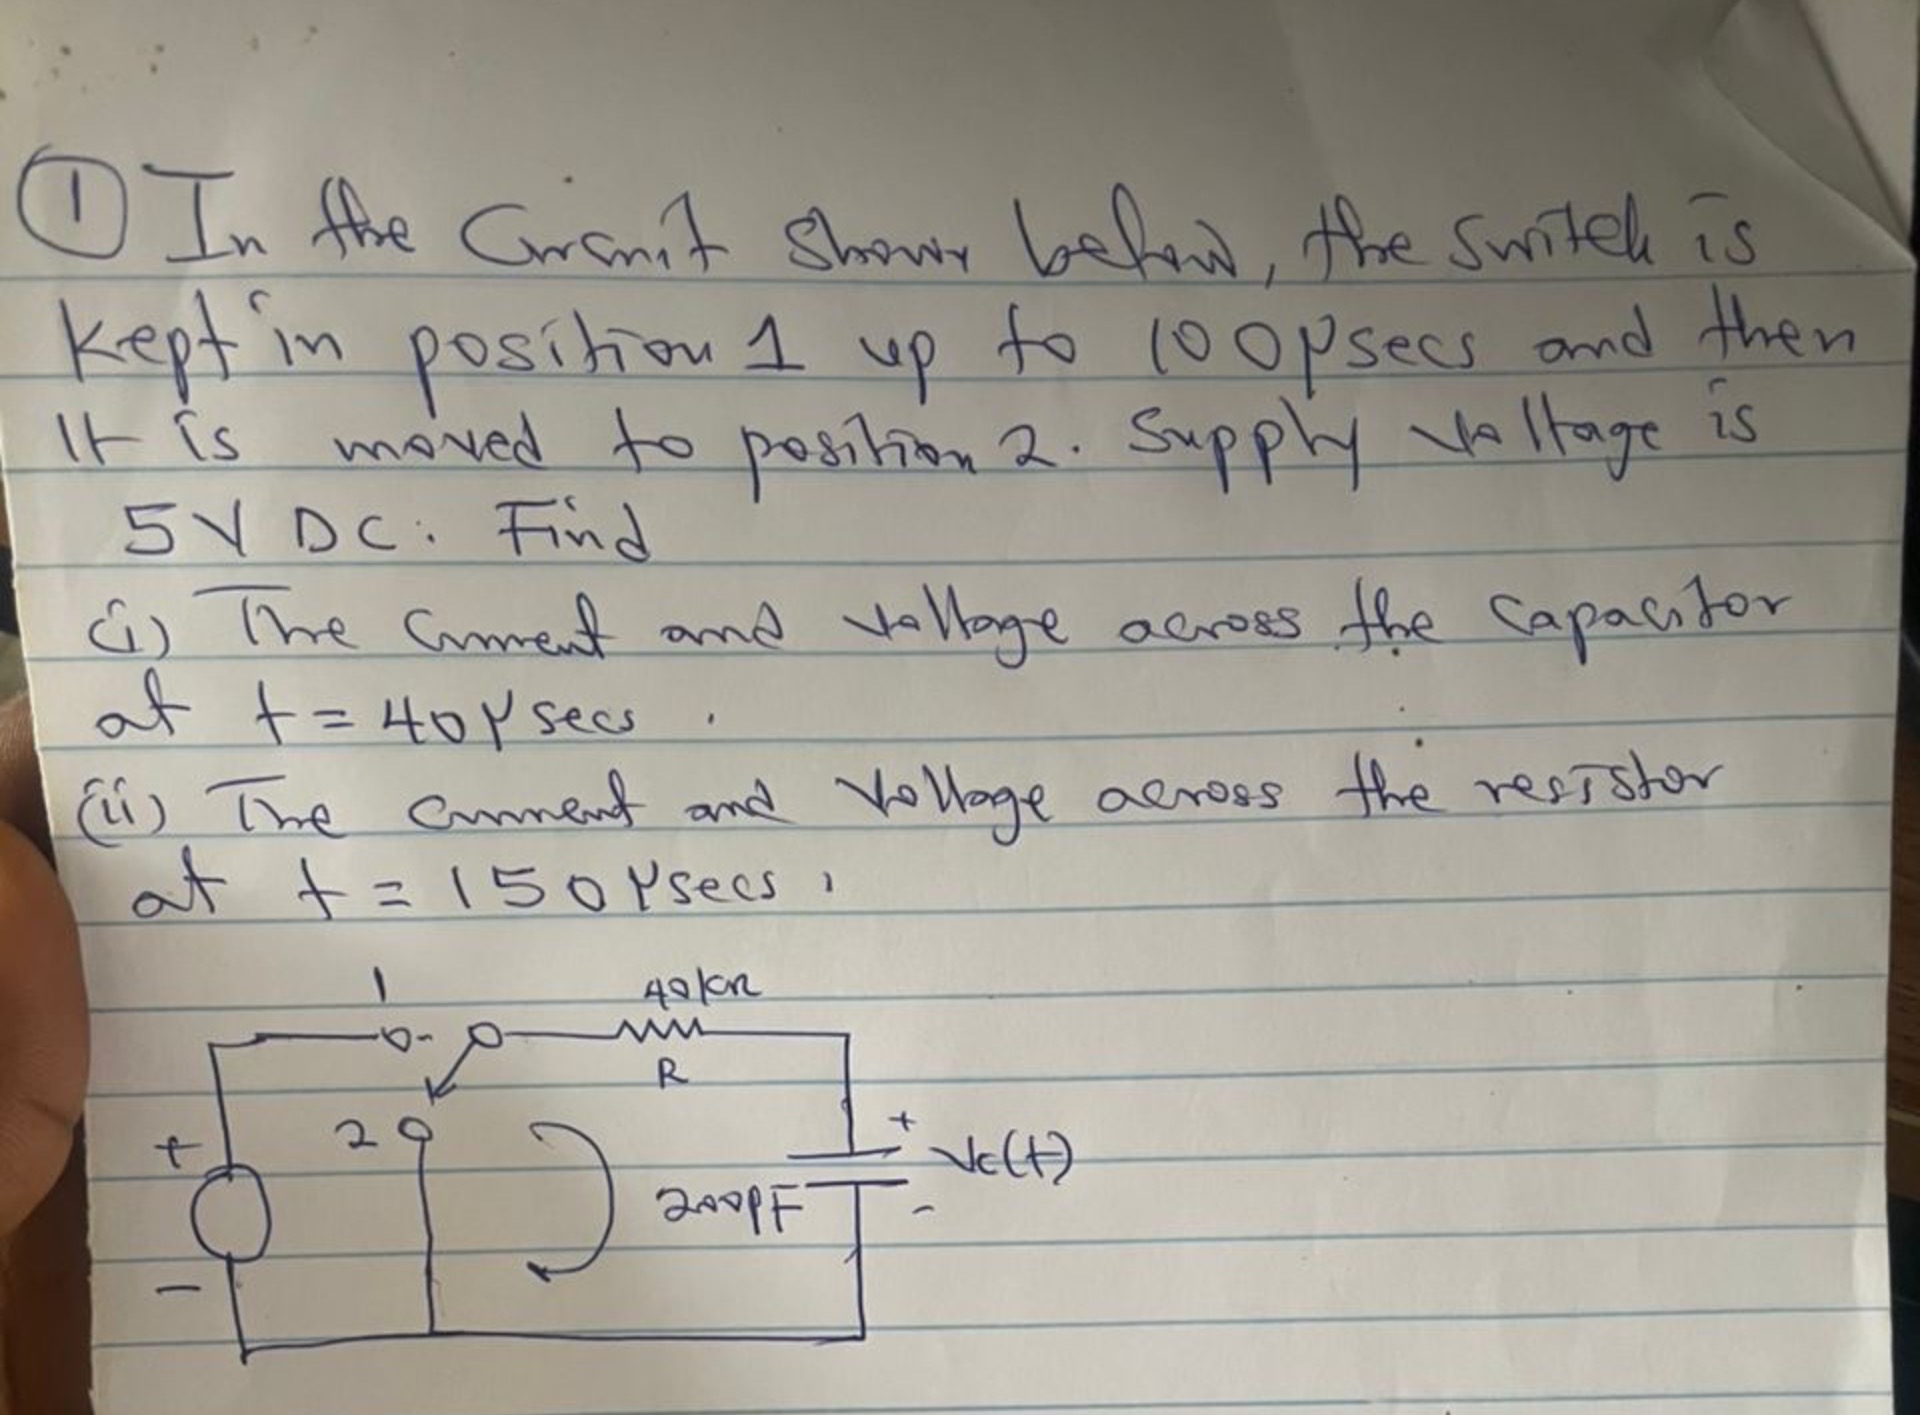 ① In the Circuit shown below, the switch is
kept in position 1 up to 100μsecs and then
It is moved to position 2. Supply voltage is
5V DC. Find
(i) The Current and voltage across the capacitor
at t = 40μsecs.
(ii) The current and Voltage across the resistor
at t = 150μsecs.
1
40kΩ
R
+
2
+
Vc(t)
200pF
-
-